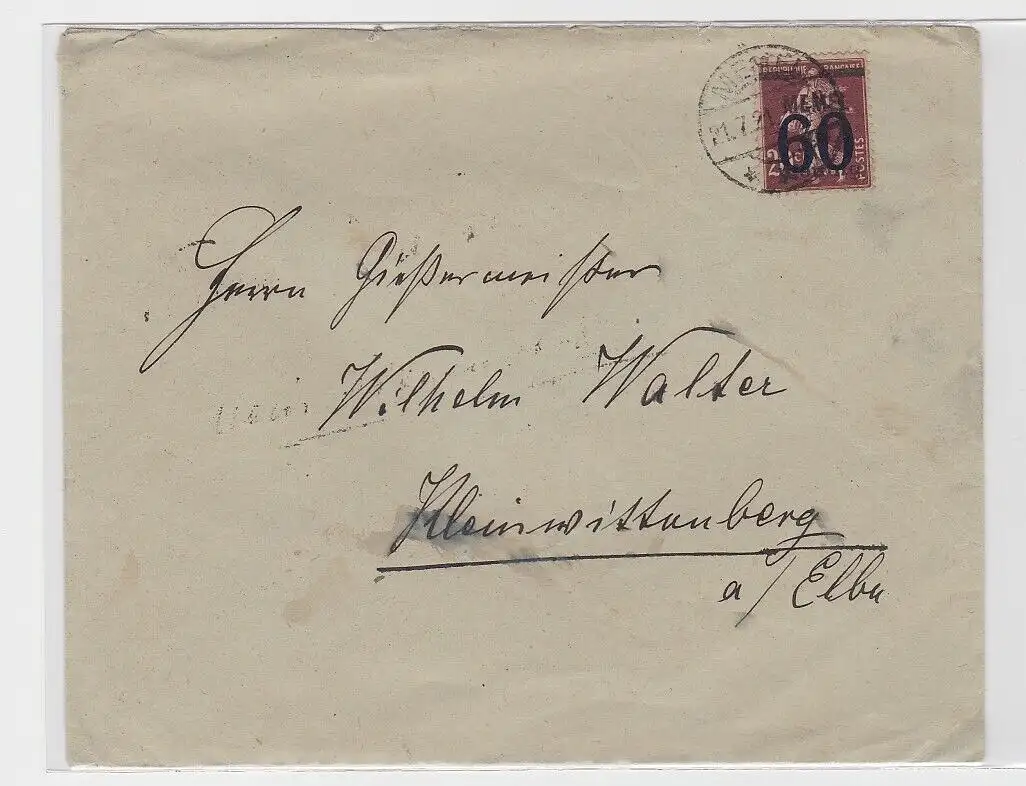 RÉPUBLIQUE FRANÇAISE
MEMEL
60
POSTES
21.7.21
Herrn Gießermeister
Wilhelm Walter
Kleinwittenberg
a/Elbe